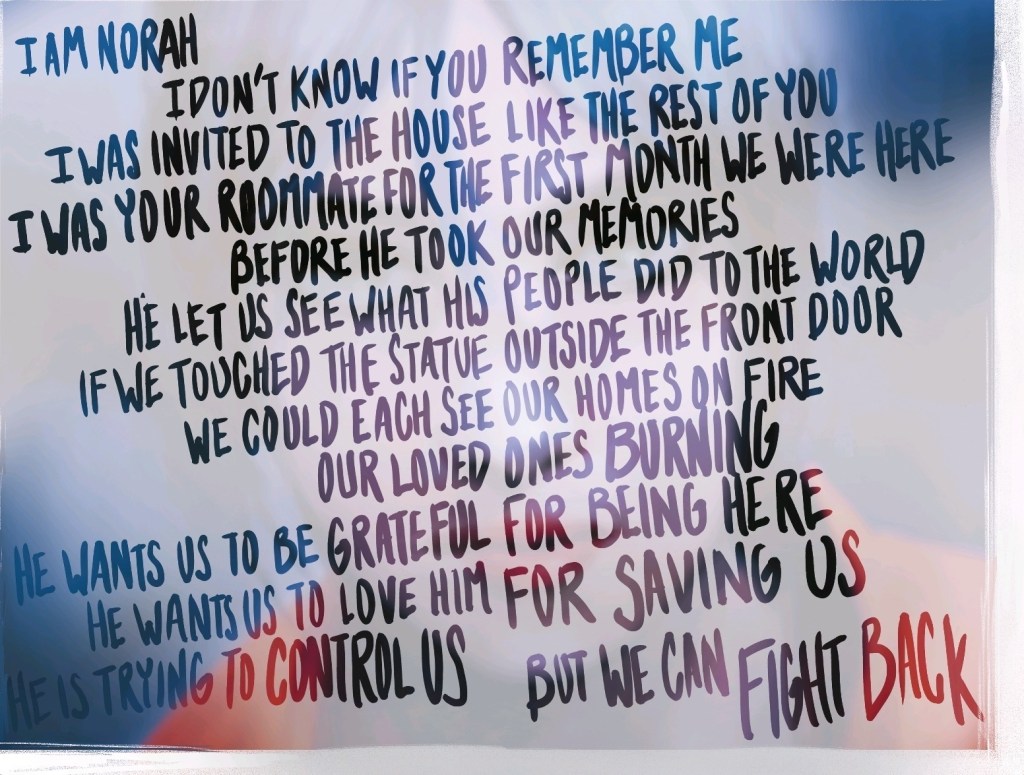 I AM NORAH
I DON'T KNOW IF YOU REMEMBER ME
I WAS INVITED TO THE HOUSE LIKE THE REST OF YOU
I WAS YOUR ROOMMATE FOR THE FIRST MONTH WE WERE HERE
BEFORE HE TOOK OUR MEMORIES
HE LET US SEE WHAT HIS PEOPLE DID TO THE WORLD
IF WE TOUCHED THE STATUE OUTSIDE THE FRONT DOOR
WE COULD EACH SEE OUR HOMES ON FIRE
OUR LOVED ONES BURNING
HE WANTS US TO BE GRATEFUL FOR BEING HERE
HE WANTS US TO LOVE HIM FOR SAVING US
HE IS TRYING TO CONTROL US BUT WE CAN FIGHT BACK